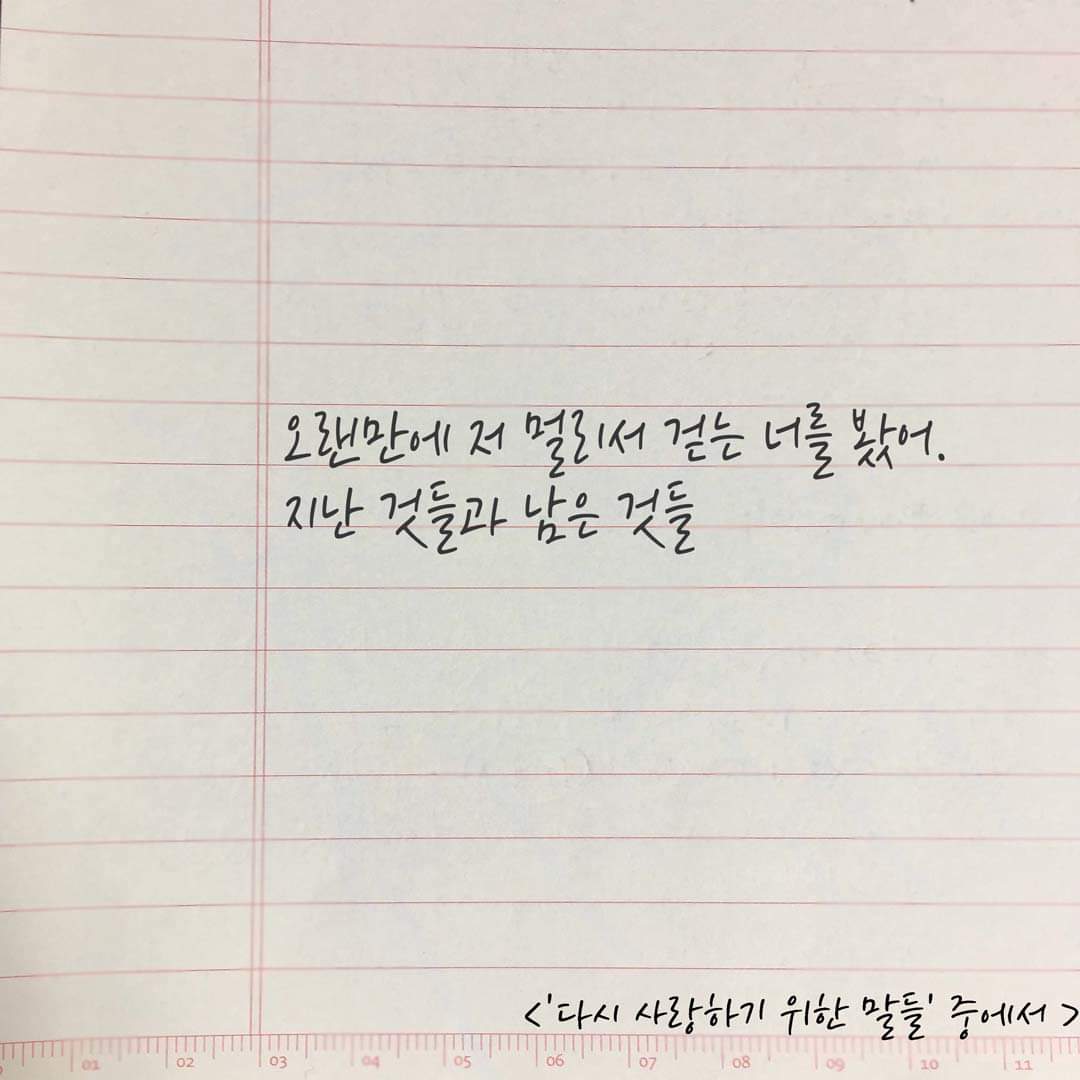 오랜만에 저 멀리서 걷는 너를 봤어.
지난 것들과 남은 것들
<'다시 사랑하기 위한 말들' 중에서 >
01 02 03 04 05 06 07 08 09 10 11